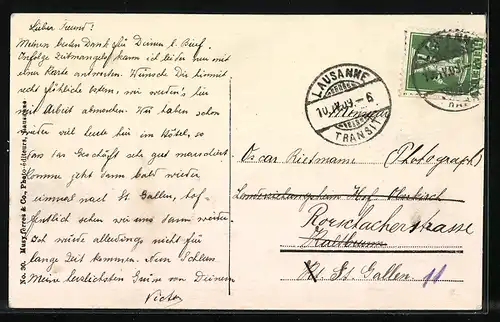 Lieber Freund!
Meinen besten Dank für Deinen l. Brief.
Infolge Zeitmangel kann ich leider nur mit
einer Karte antworten. Wünsche Dir hiermit
recht fröhliche Ostern, wir werden's hier
mit Arbeit abmachen. Wir haben schon
wieder viel Leute hier im Hôtel, so
dass das Geschäft sehr gut marschiert
Komme jetzt dann bald wieder
einmal nach St. Gallen, hof-
fentlich sehen wir uns dann wieder.
Ich würde allerdings nicht für
lange Zeit kommen. Nun Schluss
Meine herzlichsten Grüsse von Deinem
Victor
No. 30. Photo-éditeurs, Lausanne
LAUSANNE
10.IV.09-6
TRANSIT
HELVETIA
Monsieur
Oscar Rietmann (Photograph)
Rorschacherstrasse
Kaltbrunn
St. Gallen 11